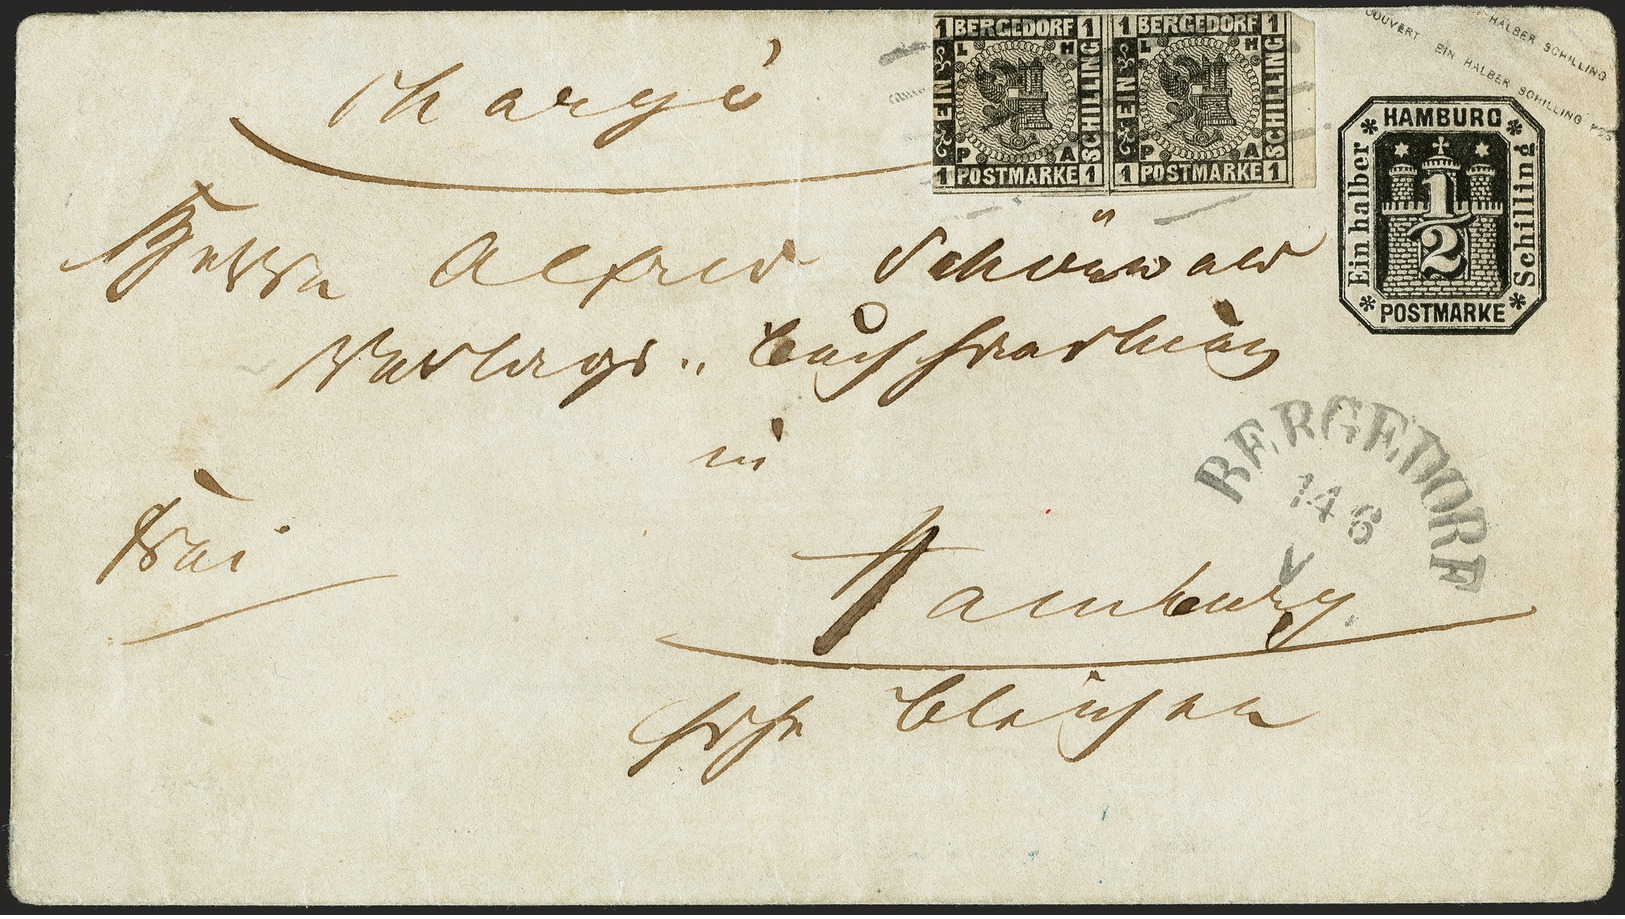 Chargé
1 BERGEDORF 1
L H
EIN
SCHILLING
P A
1 POSTMARKE 1
1 BERGEDORF 1
L H
EIN
SCHILLING
P A
1 POSTMARKE 1
HALBER SCHILLING
COUVERT EIN HALBER SCHILLING POS
HAMBURG
Ein halber
1/2
Schilling
POSTMARKE
Herrn Alfred Schönwald
Verlags- Buchhandlung
in
frei
BERGEDORF
14 6
V
Hamburg
hohe Bleichen